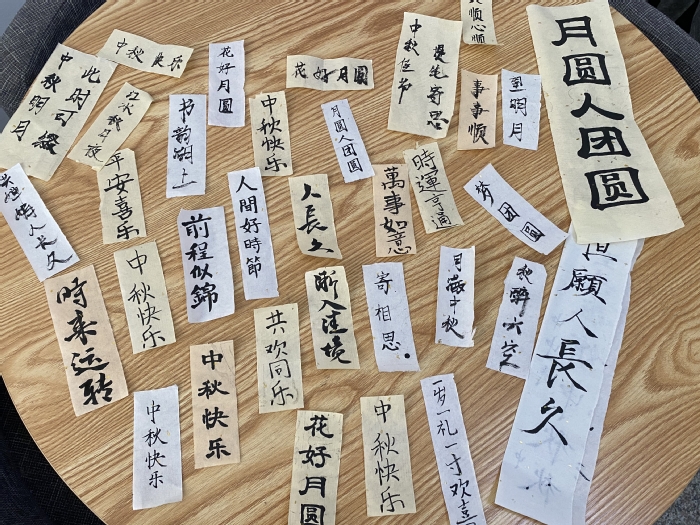 中秋快乐
此时可缀
中秋明月
花好月圆
花好月圆
中秋佳节
思
心顺
事事顺
明月
月圆人团圆
书韵湖上
中秋快乐
月圆人团圆
平安喜乐
人長久
人間好時節
人長久
萬事如意
時運亨通
团圆
前程似錦
中秋快乐
時来运转
共欢同乐
渐入佳境
寄相思。
月满中秋
秋醉
但願人長久
中秋快乐
中秋快乐
花好月圆
中秋快乐
一岁一礼一寸欢喜